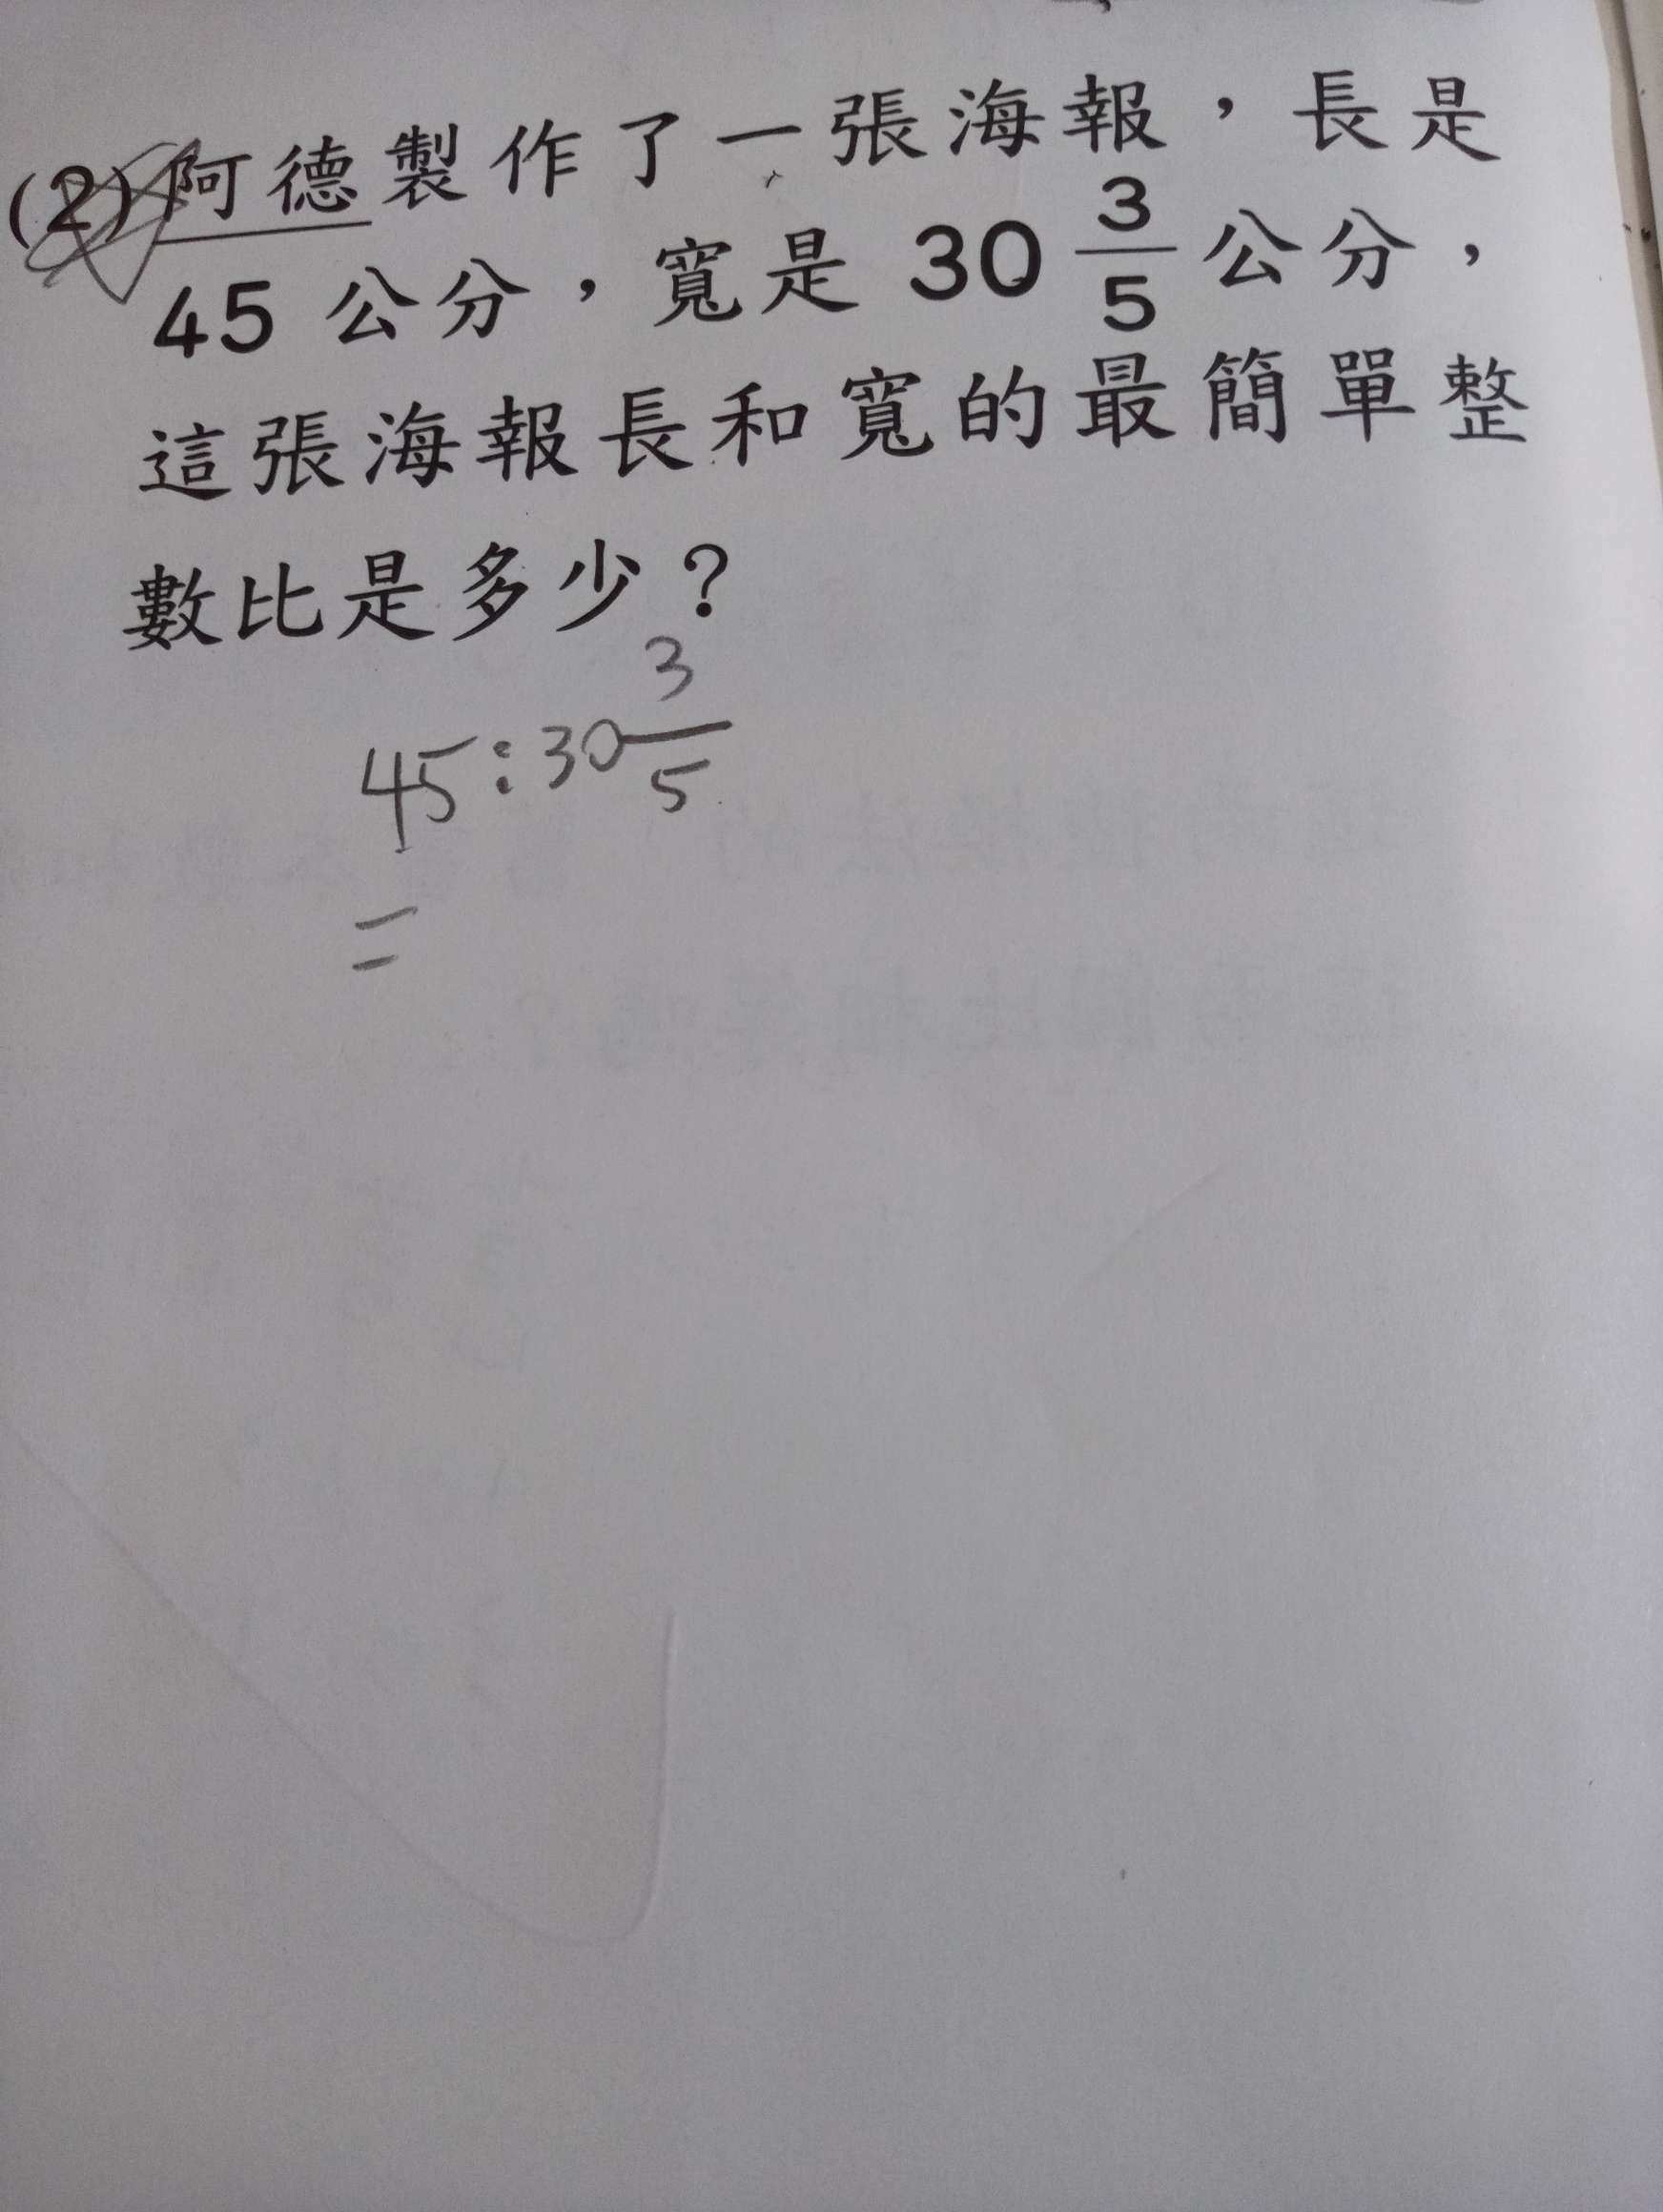 (2) 阿德製作了一張海報，長是
45 公分，寬是 30 3/5 公分，
這張海報長和寬的最簡單整
數比是多少？
45:30 3/5
=